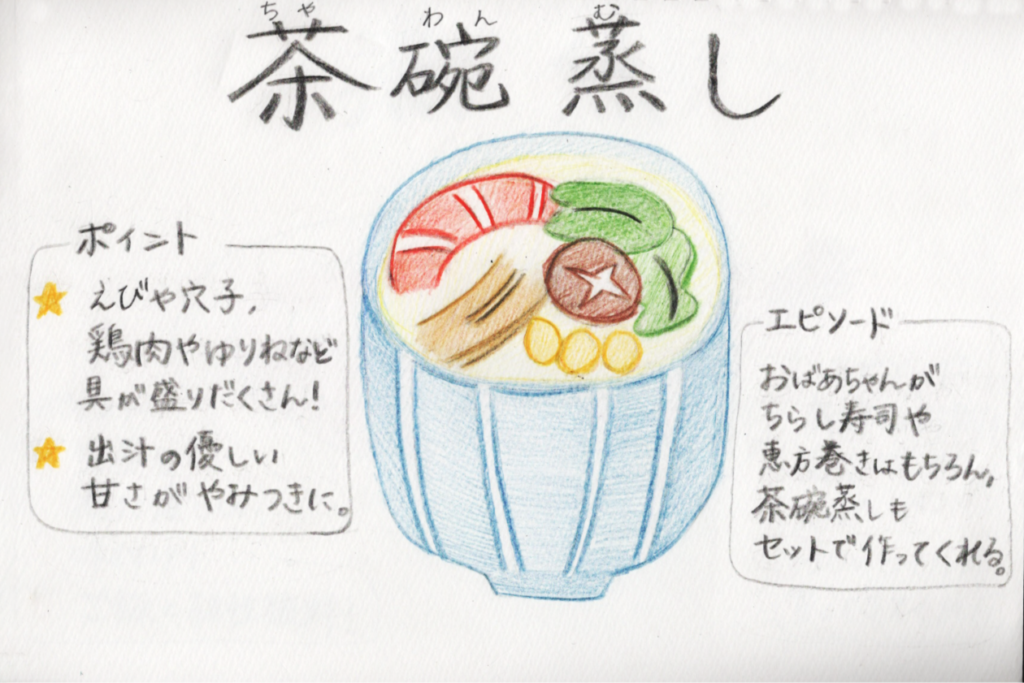 ちゃ わん む
茶碗蒸し
ポイント
えびや穴子,
鶏肉やゆりねなど
具が盛りだくさん!
出汁の優しい
甘さがやみつきに。
エピソード
おばあちゃんが
ちらし寿司や
恵方巻きはもちろん,
茶碗蒸しも
セットで作ってくれる。